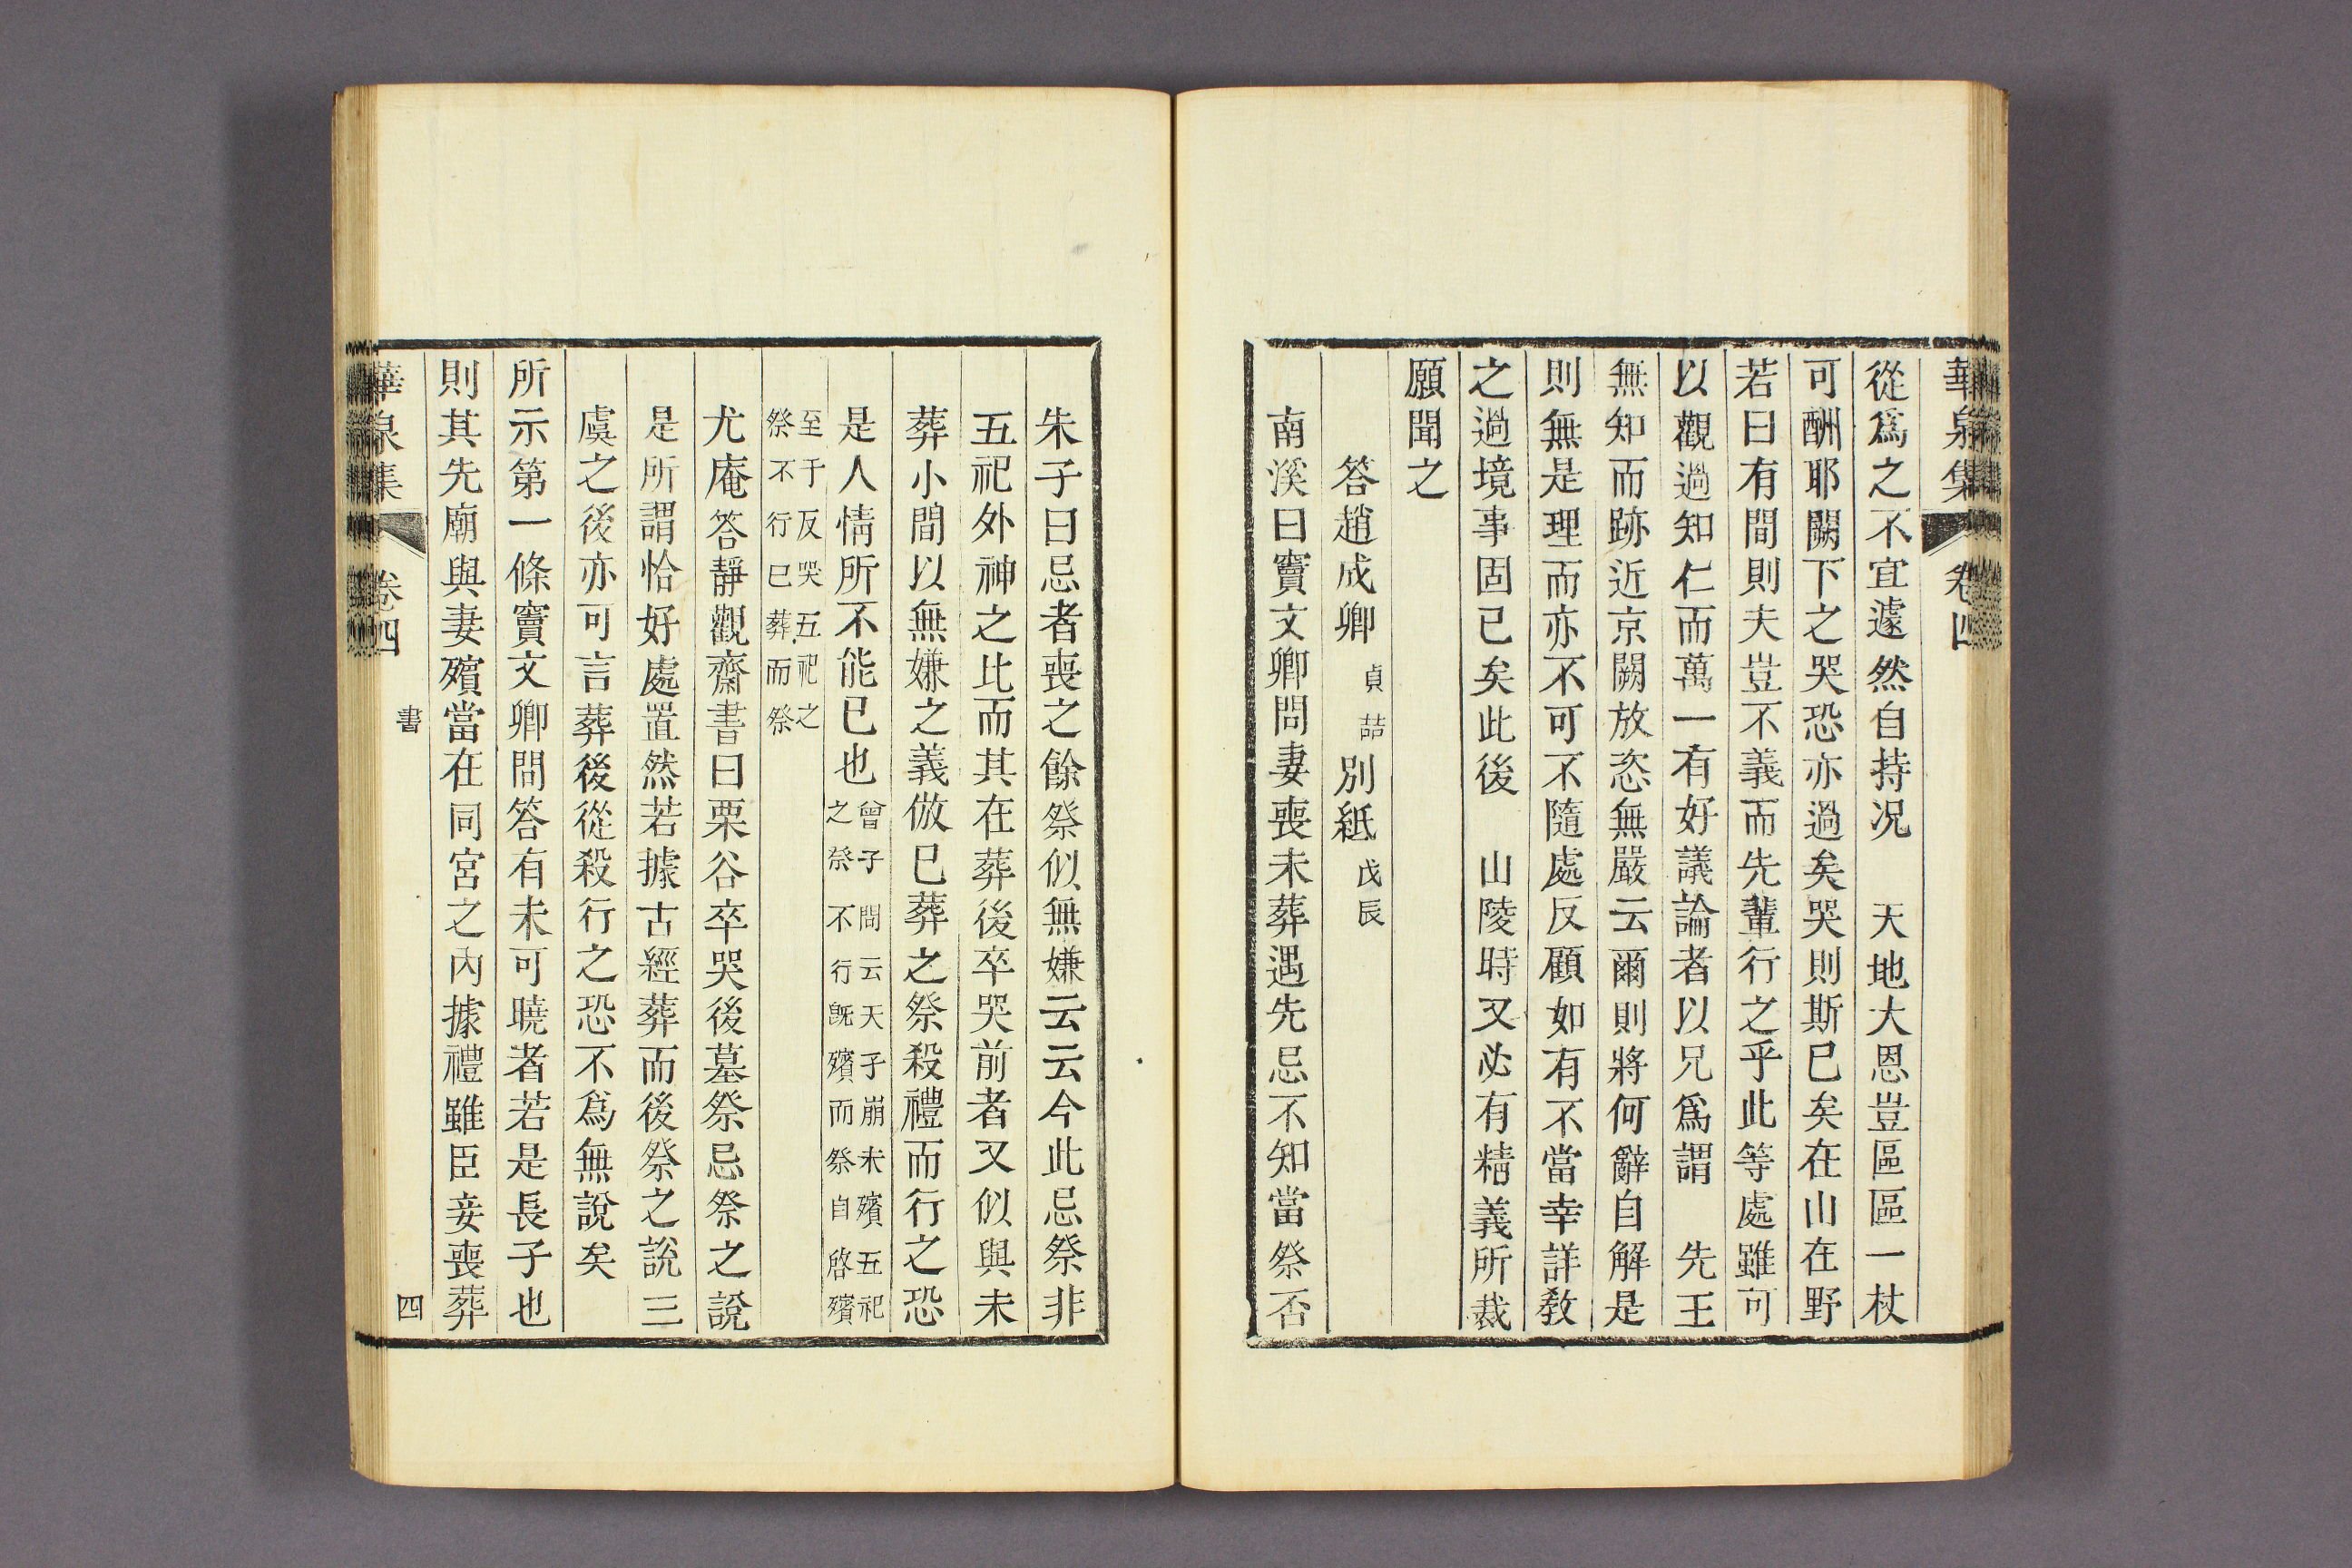 華泉集 卷四
從爲之不宜遽然自持况 天地大恩豈區區一杖
可酬耶闕下之哭恐亦過矣哭則斯已矣在山在野
若曰有間則夫豈不義而先輩行之乎此等處雖可
以觀過知仁而萬一有好議論者以兄爲謂 先王
無知而跡近京闕放恣無嚴云爾則將何辭自解是
則無是理而亦不可不隨處反顧如有不當幸詳敎
之過境事固已矣此後 山陵時又必有精義所裁
願聞之
答趙成卿 貞喆 別紙 戊辰
南溪曰竇文卿問妻喪未葬遇先忌不知當祭否
朱子曰忌者喪之餘祭似無嫌云云今此忌祭非
五祀外神之比而其在葬後卒哭前者又似與未
葬小間以無嫌之義倣已葬之祭殺禮而行之恐
是人情所不能已也 曾子問云天子崩未殯五祀
之祭不行旣殯而祭自啓殯
至于反哭五祀之
祭不行已葬而祭
尤庵答靜觀齋書曰栗谷卒哭後墓祭忌祭之說
是所謂恰好處置然若據古經葬而後祭之說三
虞之後亦可言葬後從殺行之恐不爲無說矣
所示第一條竇文卿問答有未可曉者若是長子也
則其先廟與妻殯當在同宮之內據禮雖臣妾喪葬
華泉集 卷四 書 四